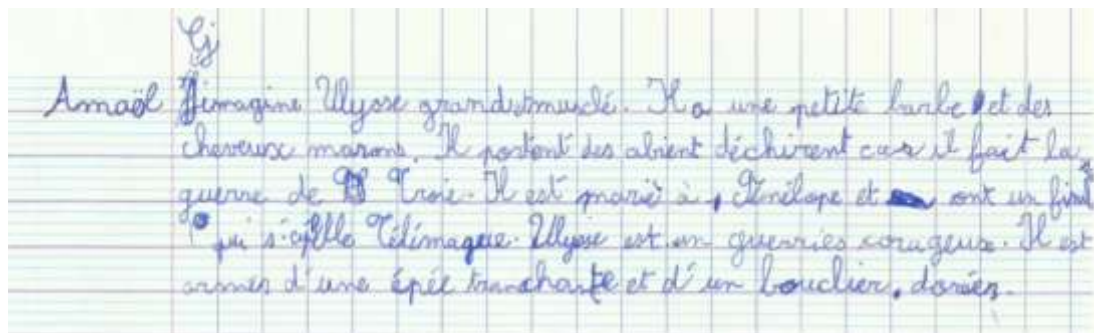 Cj
Amaöl J'imagine Ulysse grand et musclé. Il a une petite barbe et des
cheveux marons. Il portent des abient déchirent car il fait la
guerre de Troie. Il est marié à Pénélope et ont un fils
qui s'apelle Télémaque. Ulysse est un guerries corageux. Il est
armés d'une épée tranchante et d'un bouclier, dorées.